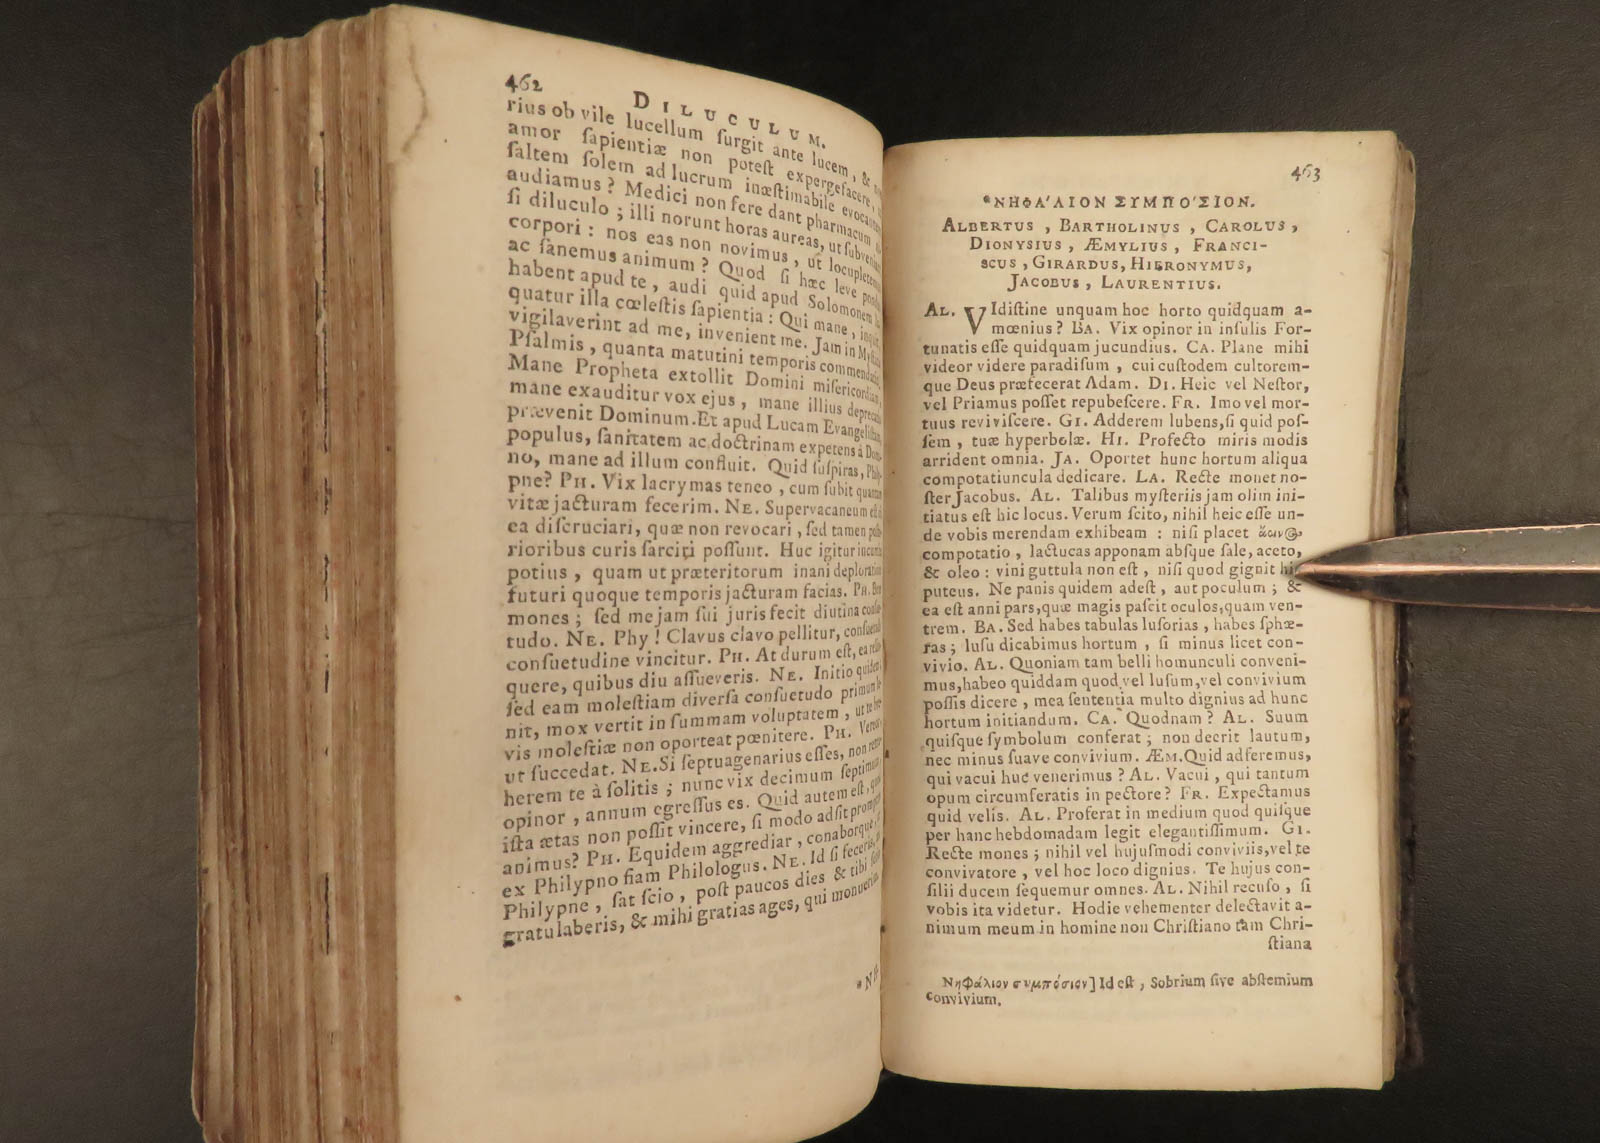 462 DILUCULUM.
rius ob vile lucellum ſurgit ante lucem, &
amor ſapientiæ non poteſt expergefacere,
ſaltem ſolem ad lucrum inæſtimabile evocantem
audiamus? Medici non fere dant pharmacum
ſi diluculo; illi norunt horas aureas, ut ſubveniant
corpori: nos eas non novimus, ut locupletemus
ac ſanemus animum? Quod ſi hæc leve pondus
habent apud te, audi quid apud Solomonem
quatur illa cœleſtis ſapientia: Qui mane, inquit,
vigilaverint ad me, invenient me. Jam in
Pſalmis, quanta matutini temporis commendatio?
Mane Propheta extollit Domini miſericordiam,
mane exauditur vox ejus, mane illius deprecatio
prævenit Dominum. Et apud Lucam Evangeliſtam,
populus, ſanitatem ac doctrinam expetens à Domi-
no, mane ad illum confluit. Quid ſuſpiras, Phily-
pne? PH. Vix lacrymas teneo, cum ſubit quantam
vitæ jacturam fecerim. NE. Supervacaneum eſt
ea diſcruciari, quæ non revocari, ſed tamen poſte-
rioribus curis ſarciri poſſunt. Huc igitur incumbe
potius, quam ut præteritorum inani deploratione
futuri quoque temporis jacturam facias. PH. Bene
mones; ſed me jam ſui juris fecit diutina conſue-
tudo. NE. Phy! Clavus clavo pellitur, conſuetudo
conſuetudine vincitur. PH. At durum eſt, ea relin-
quere, quibus diu aſſueveris. NE. Initio quidem;
ſed eam moleſtiam diverſa conſuetudo primum le-
nit, mox vertit in ſummam voluptatem, ut te bre-
vis moleſtiæ non oporteat pœnitere. PH. Vereor
ut ſuccedat. NE. Si ſeptuagenarius eſſes, non retra-
herem te à ſolitis; nunc vix decimum ſeptimum,
opinor, annum egreſſus es. Quid autem eſt, quod
iſta ætas non poſſit vincere, ſi modo adſit promptus
animus? PH. Equidem aggrediar, conaborque,
ex Philypno fiam Philologus. NE. Id ſi feceris,
Philypne, ſat ſcio, poſt paucos dies & tibi
gratulaberis, & mihi gratias ages, qui monuerim.
*NH-
463
*ΝΗΦΑ'ΛΙΟΝ ΣΥΜΠΟ'ΣΙΟΝ.
ALBERTUS, BARTHOLINUS, CAROLUS,
DIONYSIUS, ÆMYLIUS, FRANCI-
SCUS, GIRARDUS, HIERONYMUS,
JACOBUS, LAURENTIUS.
AL. VIdiſtine unquam hoc horto quidquam a-
mœnius? BA. Vix opinor in inſulis For-
tunatis eſſe quidquam jucundius. CA. Plane mihi
videor videre paradiſum, cui cuſtodem cultorem-
que Deus præfecerat Adam. DI. Heic vel Neſtor,
vel Priamus poſſet repubeſcere. FR. Imo vel mor-
tuus reviviſcere. GI. Adderem lubens, ſi quid poſ-
ſem, tuæ hyperbolæ. HI. Profecto miris modis
arrident omnia. JA. Oportet hunc hortum aliqua
compotatiuncula dedicare. LA. Recte monet no-
ſter Jacobus. AL. Talibus myſteriis jam olim ini-
tiatus eſt hic locus. Verum ſcito, nihil heic eſſe un-
de vobis merendam exhibeam: niſi placet ἄοινος
compotatio, lactucas apponam abſque ſale, aceto,
& oleo: vini guttula non eſt, niſi quod gignit
puteus. Ne panis quidem adeſt, aut poculum; &
ea eſt anni pars, quæ magis paſcit oculos, quam ven-
trem. BA. Sed habes tabulas luſorias, habes ſphæ-
ras; luſu dicabimus hortum, ſi minus licet con-
vivio. AL. Quoniam tam belli homunculi conveni-
mus, habeo quiddam quod vel luſum, vel convivium
poſſis dicere, mea ſententia multo dignius ad hunc
hortum initiandum. CA. Quodnam? AL. Suum
quiſque ſymbolum conferat; non deerit lautum,
nec minus ſuave convivium. ÆM. Quid adferemus,
qui vacui huc venerimus? AL. Vacui, qui tantum
opum circumferatis in pectore? FR. Expectamus
quid velis. AL. Proferat in medium quod quiſque
per hanc hebdomadam legit elegantiſſimum. GI.
Recte mones; nihil vel hujuſmodi conviviis, vel te
convivatore, vel hoc loco dignius. Te hujus con-
ſilii ducem ſequemur omnes. AL. Nihil recuſo, ſi
vobis ita videtur. Hodie vehementer delectavit a-
nimum meum in homine non Chriſtiano tam Chri-
ſtiana
Νηφάλιον συμπόσιον] Id eſt, Sobrium ſive abſtemium
convivium.